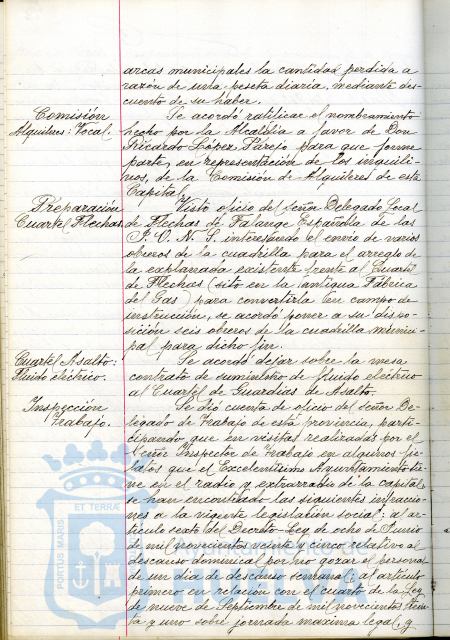 arcas municipales la cantidad perdida a
razón de una peseta diaria, mediante des-
cuento de su haber.
Comisión
Alquileres: Vocal.
Se acordó ratificar el nombramiento
hecho por la Alcaldía a favor de Don
Ricardo López Parejo para que forme
parte, en representación de los inquili-
nos, de la Comisión de Alquileres de esta
Capital.
Preparación
Cuartel Flechas.
Visto oficio del señor Delegado Local
de Flechas de Falange Española de las
J. O. N. S. interesando el envío de varios
obreros de la cuadrilla para el arreglo de
la explanada existente frente al Cuartel
de Flechas (sito en la antigua Fábrica
del Gas) para convertirla en campo de
instrucción, se acordó poner a su dispo-
sición seis obreros de la cuadrilla munici-
pal para dicho fin.
Cuartel Asalto:
Fluido eléctrico.
Se acordó dejar sobre la mesa
contrato de suministro de fluido eléctrico
al Cuartel de Guardias de Asalto.
Inspección
Trabajo.
Se dió cuenta de oficio del señor De-
legado de Trabajo de esta provincia, parti-
cipando que en visitas realizadas por el
señor Inspector de Trabajo en algunos fie-
latos que el Excelentísimo Ayuntamiento tie-
ne en el radio y extrarradio de la capital
se han encontrado las siguientes infraccio-
nes a la vigente legislación social: al ar-
tículo sexto del Decreto-Ley de ocho de Junio
de mil novecientos veinte y cinco relativo al
descanso dominical por no gozar el personal
de un día de descanso semanal; al artículo
primero en relación con el cuarto de la Ley
de nueve de Septiembre de mil novecientos trein-
ta y uno sobre jornada máxima legal, y
ET TERRAE
PORTUS MARIS
Ayuntamiento de